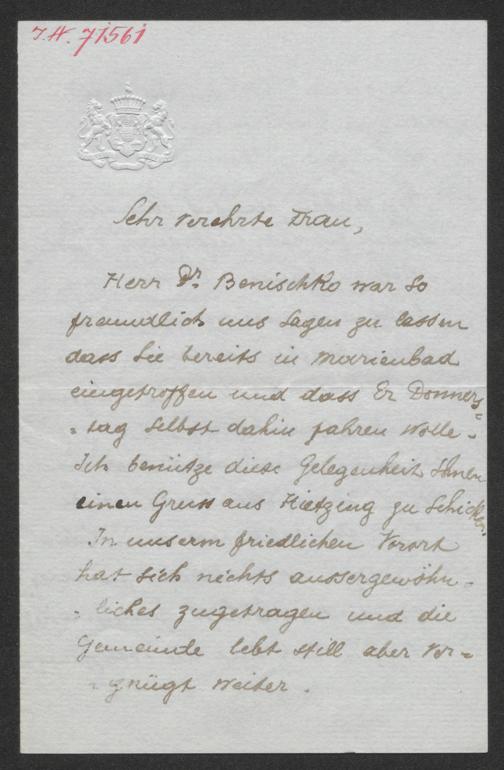 I.N. 71561
Sehr verehrte Frau,
Herr Dr. Benischko war so
freundlich uns sagen zu lassen
dass Sie bereits in Marienbad
eingetroffen und dass Er Donners
=tag selbst dahin fahren wolle.
Ich benütze diese Gelegenheit Ihnen
einen Gruss aus Hietzing zu schicken.
In unserm friedlichen Vorort
hat sich nichts aussergewöhn-
-liches zugetragen und die
Gemeinde lebt still aber ver=
=gnügt weiter.